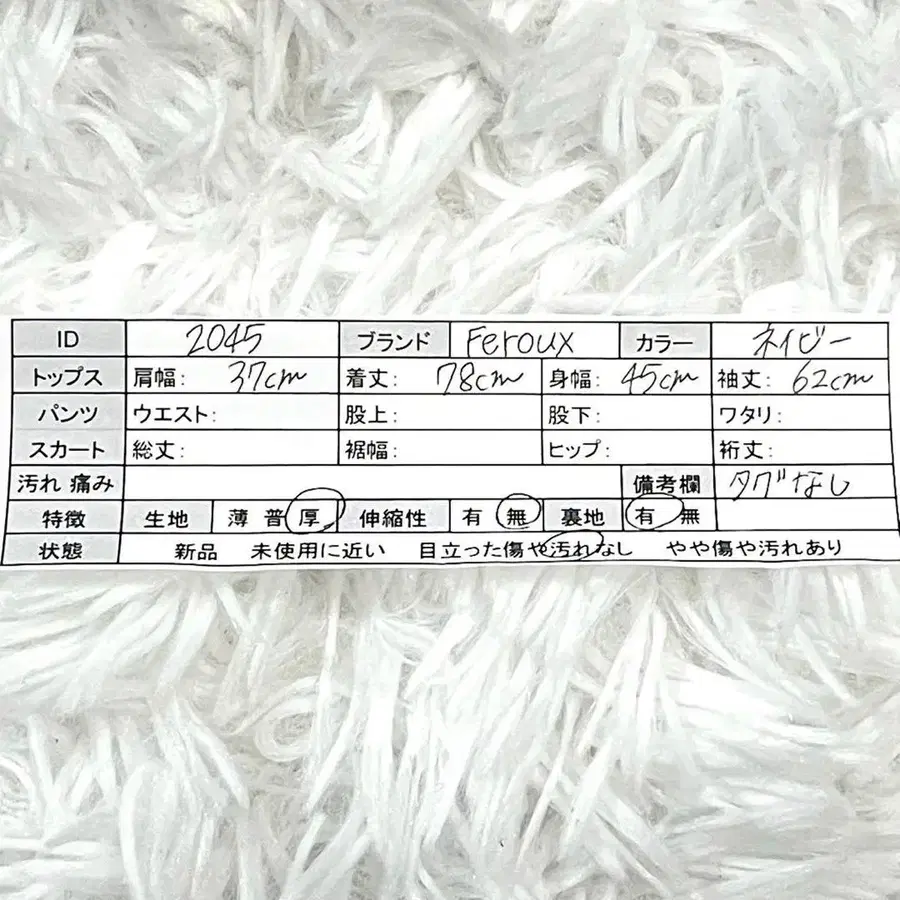 ID 2045 ブランド Feroux カラー ネイビー
トップス 肩幅: 37cm 着丈: 78cm 身幅: 45cm 袖丈: 62cm
パンツ ウエスト: 股上: 股下: ワタリ:
スカート 総丈: 裾幅: ヒップ: 裄丈:
汚れ 痛み 備考欄 タグなし
特徴 生地 薄 普 厚 伸縮性 有 無 裏地 有 無
状態 新品 未使用に近い 目立った傷や汚れなし やや傷や汚れあり